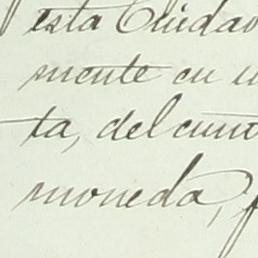 esta Ciudad
mente en u
ta, del cunt
moneda, f